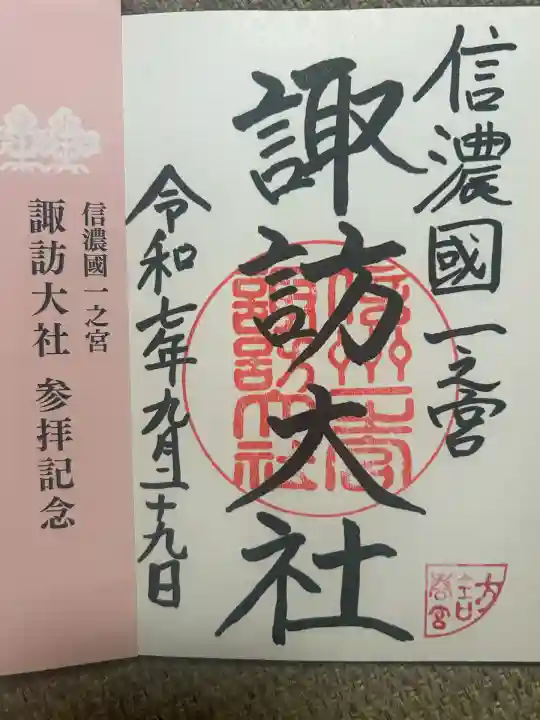 信濃國一之宮
諏訪大社
令和七年九月二十九日
信濃國一之宮
諏訪大社 参拝記念
諏訪大社
春宮